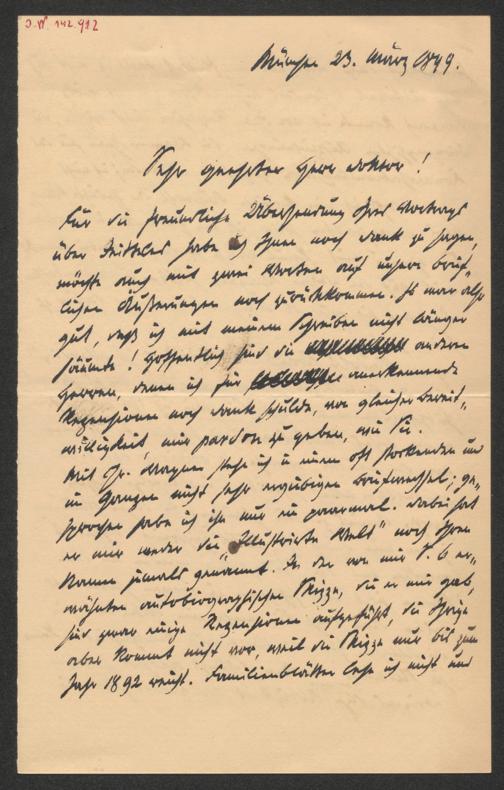 J.N. 142.912
München 23. März 1899.
Sehr geehrter Herr Doktor!
Für die freundliche Übersendung Ihres Vortrags
über habe ich Ihnen noch Dank zu sagen,
möchte auch mit zwei Worten auf unsere brief-
lichen Äußerungen noch zurückkommen. Es war also
gut, daß ich mit meinem Schreiben nicht länger
säumte! Hoffentlich sind die anderen
Herren, denen ich für anerkennende
Rezensionen noch Dank schulde, von gleicher Bereit-
willigkeit, mir pardon zu geben, wie Sie.
Mit Hr. stehe ich in einem oft stockenden und
im Ganzen nicht sehr ergiebigen Briefwechsel; ge-
sprochen habe ich ihn nur ein paarmal. Dabei hat
er mir weder die „Illustrirte Welt" noch Ihren
Namen jemals genannt. In der von mir S. 6 er-
wähnten autobiographischen Skizze, die er mir gab,
sind zwar einige Rezensionen aufgeführt, die Ihrige
aber kommt nicht vor, weil die Skizze nur bis zum
Jahr 1892 reicht. Familienblätter lese ich nicht und